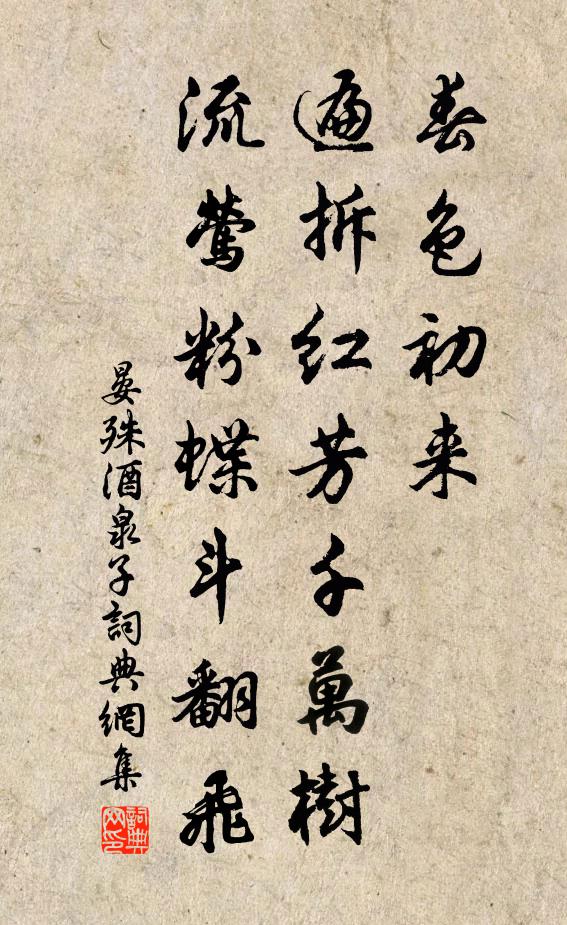 春色初来
遍拆红芳千萬樹
流鶯粉蝶斗翻飛
晏殊酒泉子詞典網集
詞典网印